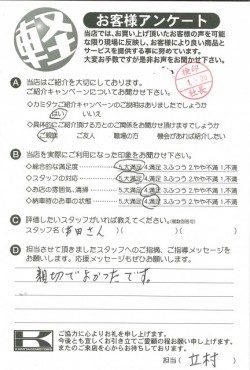 軽
お客様アンケート
当店では、お買い上げ頂いたお客様の声を可能な
限り現場に反映し、お客様により良い商品と
サービスを提供する事に努めています。
大変お手数ですが是非お声をお聞かせ下さい。
A 当店はご紹介を大切にしております。
ご紹介キャンペーンについてお聞かせ下さい。
・カミタケご紹介キャンペーンのご説明はありましたでしょうか
はい いいえ
・具体的にご紹介頂ける方とのご関係をお聞かせ頂けますでしょうか
ご親戚 ご友人 職場の方 機会があれば紹介したい
B 当店を実際にご利用になった印象をお聞かせ下さい。
◇総合的な満足度 5.大満足 4.満足 3.ふつう 2.やや不満 1.不満
◇スタッフの対応 5.大満足 4.満足 3.ふつう 2.やや不満 1.不満
◇お店の雰囲気、清掃 5.大満足 4.満足 3.ふつう 2.やや不満 1.不満
◇納車時のお車の状態 5.大満足 4.満足 3.ふつう 2.やや不満 1.不満
C 評価したいスタッフがいれば教えてください。
スタッフ名 さん
D 担当させて頂きましたスタッフへのご指摘、ご指導メッセージを
お願いします。応援メッセージもぜひお聞かせ下さい。
親切でよかったです。
K
ご協力に心よりお礼を申し上げます。
今後とも宜しくお引き立てご愛顧の程お願い申し上げます。
またのご来店を心からお待ちしております。
担当( 立村 )